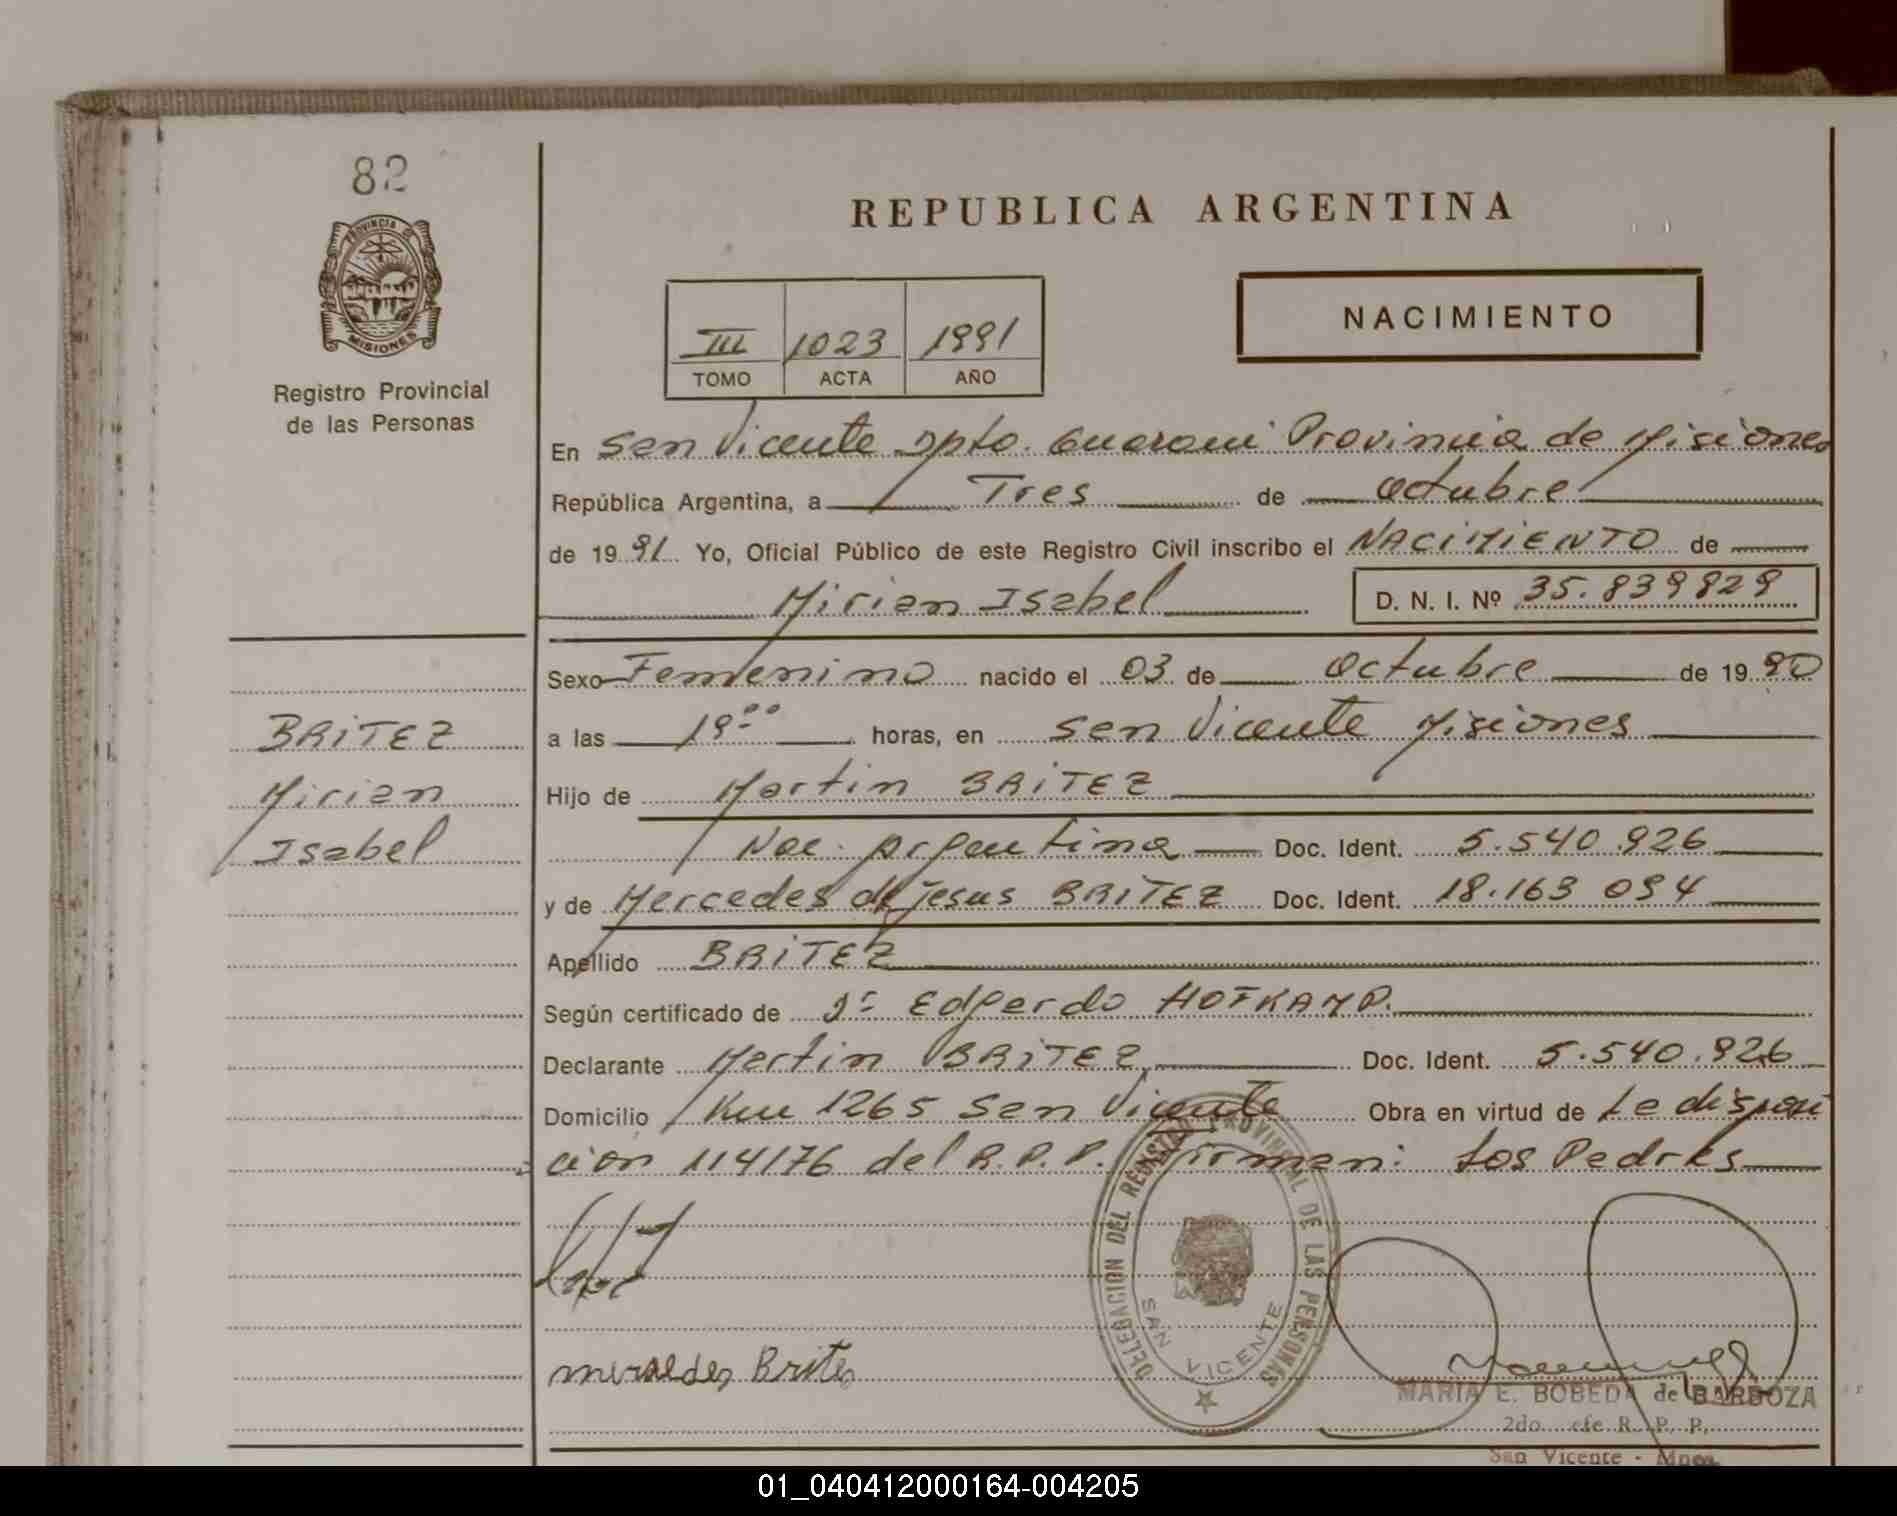 82
PROVINCIA DE
MISIONES
Registro Provincial
de las Personas
REPUBLICA ARGENTINA
III 1023 1991
TOMO ACTA AÑO
NACIMIENTO
En San Vicente Dpto. Guarani Provincia de Misiones
República Argentina, a Tres de Octubre
de 1991 Yo, Oficial Público de este Registro Civil inscribo el NACIMIENTO de
Mirian Isabel D. N. I. Nº 35.839829
Sexo Femenino nacido el 03 de Octubre de 1990
a las 19°° horas, en San Vicente Misiones
Hijo de Martin BRITEZ
Nac. Argentina Doc. Ident. 5.540.926
y de Mercedes de Jesus BRITEZ Doc. Ident. 18.163 094
Apellido BRITEZ
Según certificado de Dr Edgardo HOFKAMP.
Declarante Martin BRITEZ Doc. Ident. 5.540.926
Domicilio Km 1265 San Vicente Obra en virtud de La disposi
cion 114/76 del R.P.P. Firman: Los Padres
BRITEZ
Mirian
Isabel
DELEGACION DEL REGISTRO PROVINCIAL DE LAS PERSONAS
SAN VICENTE
mersedes Brites
MARIA E. BOBEDA de BARBOZA
2do. Jefe R. P. P.
San Vicente - Mnes.
01_040412000164-004205